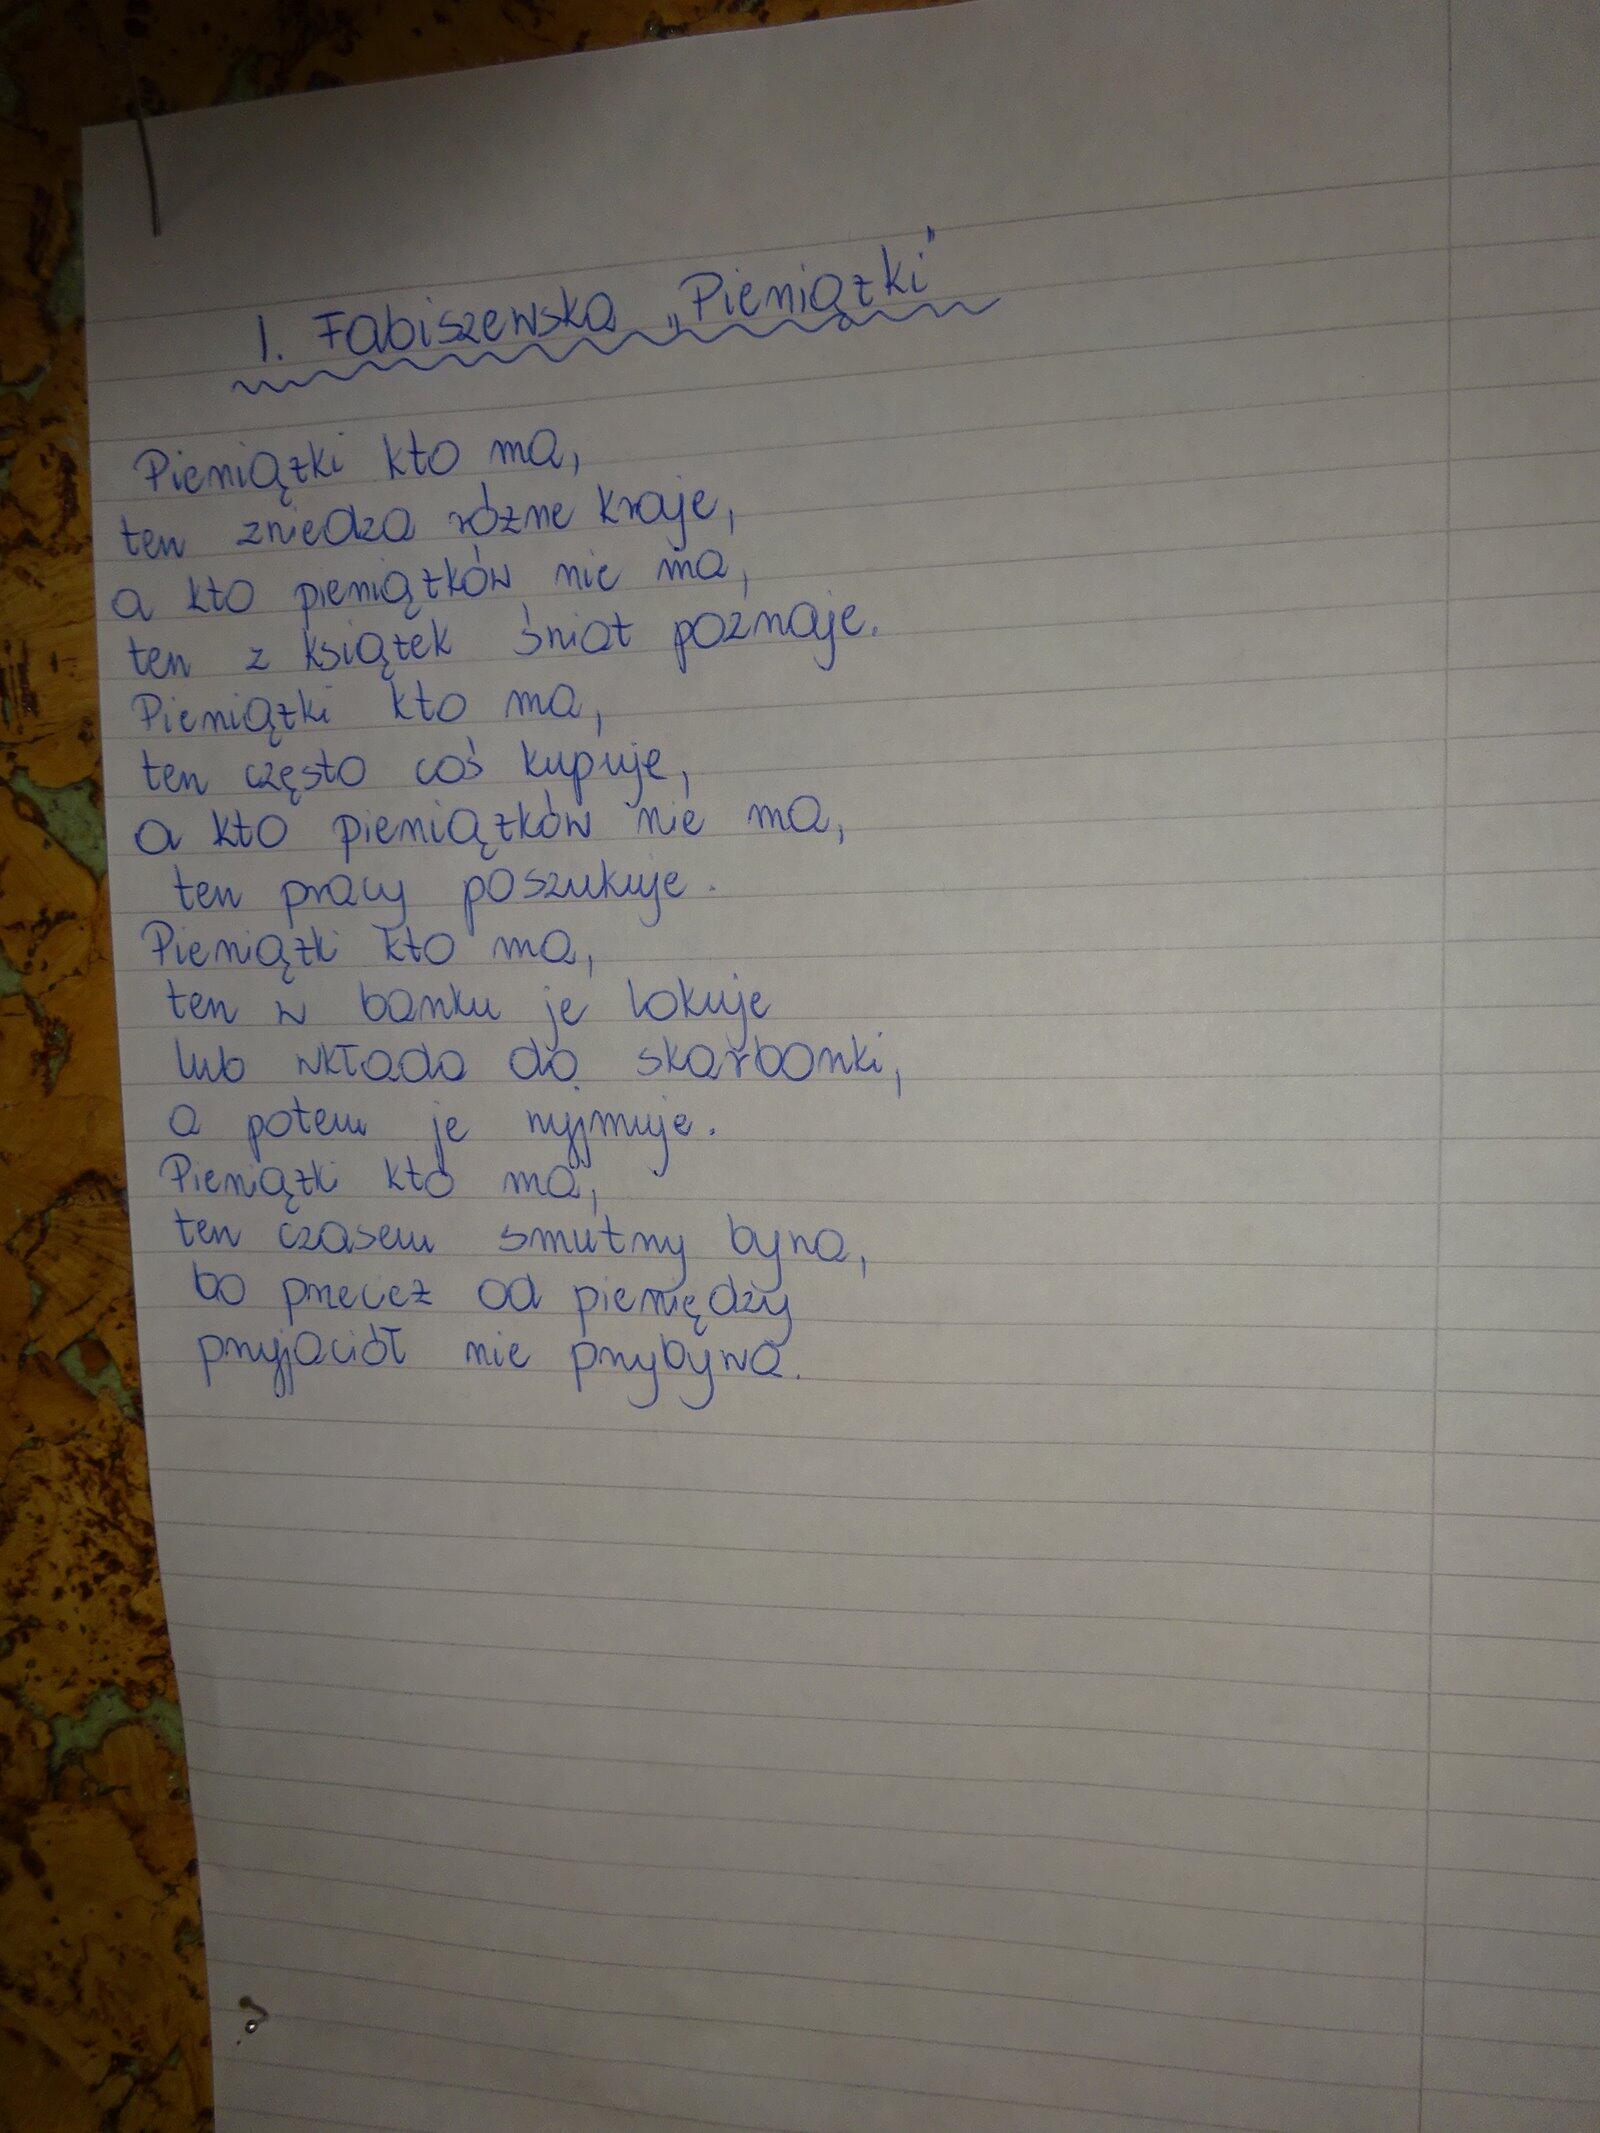 I. Fabiszewska „Pieniążki"
Pieniążki kto ma,
ten zwiedza różne kraje,
a kto pieniążków nie ma,
ten z książek świat poznaje.
Pieniążki kto ma,
ten często coś kupuje,
a kto pieniążków nie ma,
ten pracy poszukuje.
Pieniążki kto ma,
ten w banku je lokuje
lub wkłada do skarbonki,
a potem je wyjmuje.
Pieniążki kto ma,
ten czasem smutny bywa,
bo przecież od pieniędzy
przyjaciół nie przybywa.